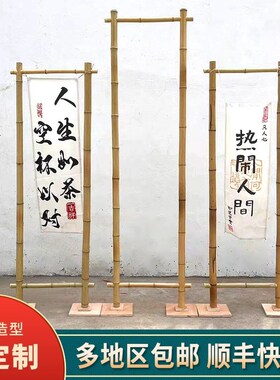 人生如茶
空杯以对
热闹人間
造型
定制
多地区包邮 顺丰快